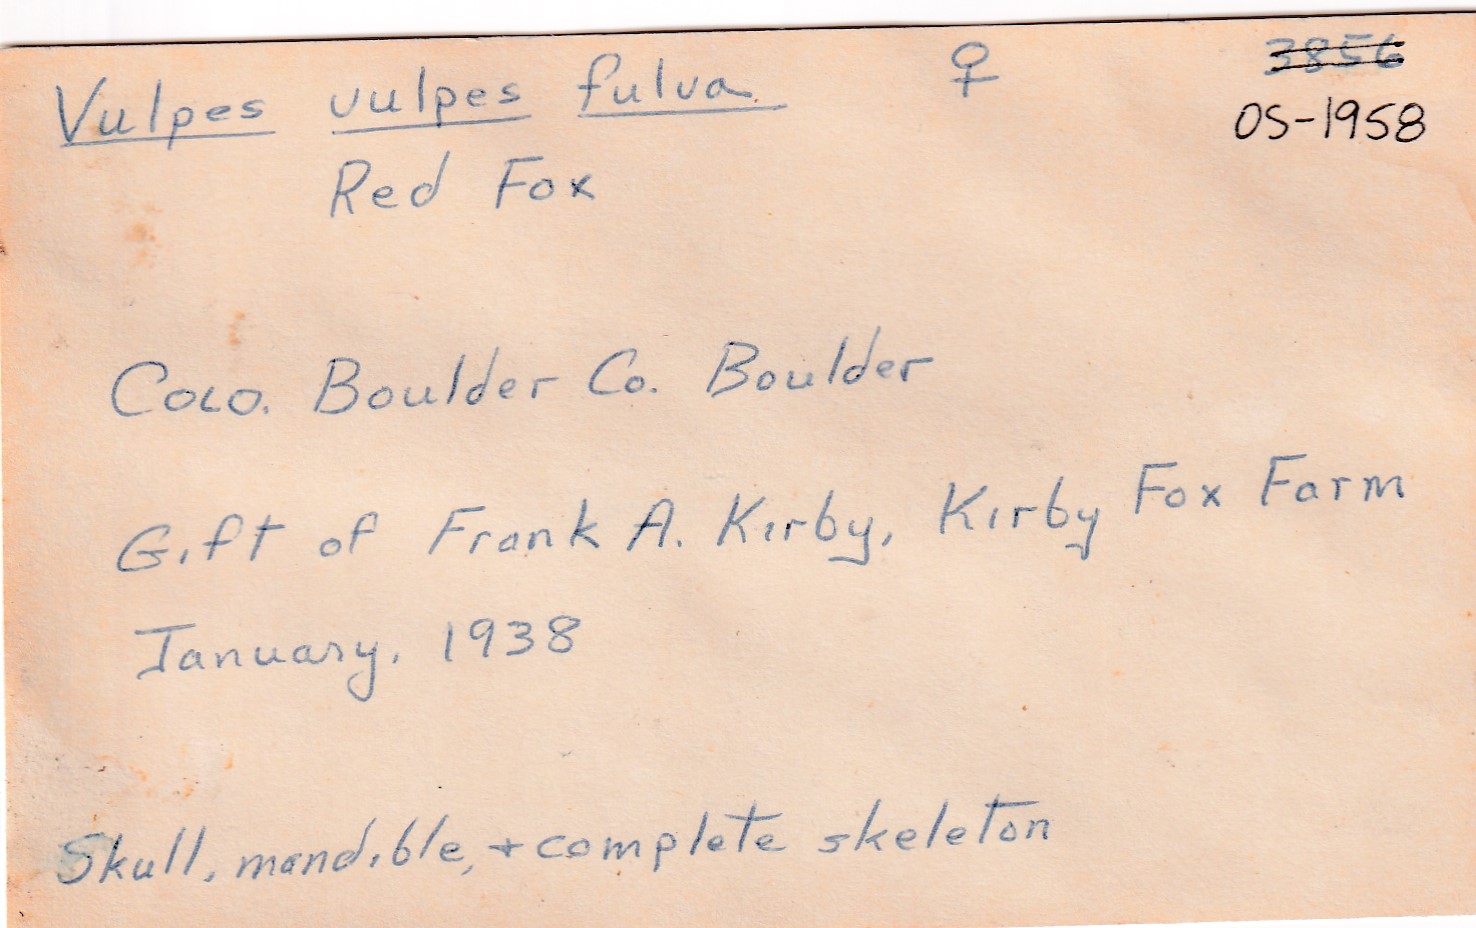 Vulpes vulpes fulva ♀ 3856
OS-1958
Red Fox
Colo. Boulder Co. Boulder
Gift of Frank A. Kirby, Kirby Fox Farm
January, 1938
Skull, mandible, + complete skeleton